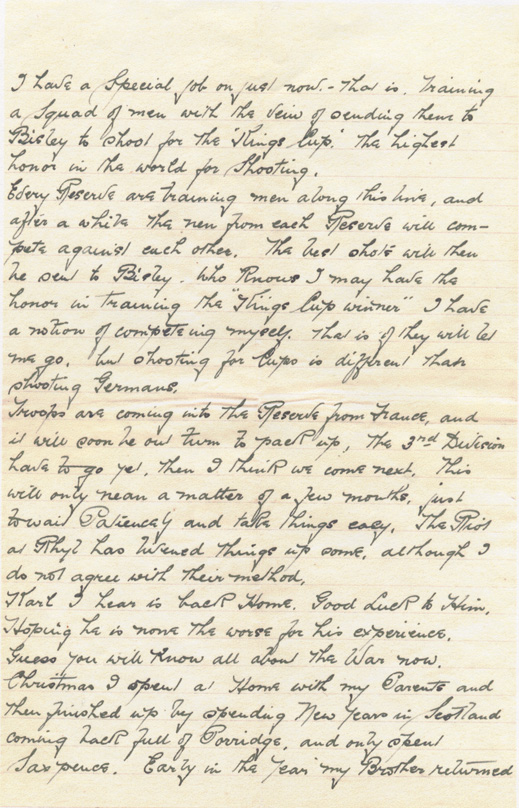 I have a Special job on just now. - that is. Training
a Squad of men with the veiw of sending them to
Bisley to shoot for the "Kings Cup." the highest
honor in the world for Shooting.
Every Reserve are training men along this line, and
after a while the men from each Reserve will com-
pete against each other. The best shots will then
be sent to Bisley. Who Knows I may have the
honor in training the "Kings Cup winner" I have
a notion of competeing myself. that is if they will let
me go. but shooting for Cups is different than
shooting Germans.
Troops are coming into the Reserve from France, and
it will soon be our turn to pack up, the 3rd Division
have to go yet, then I think we come next. This
will only mean a matter of a few months, just
to wait Patiencely and take things easy. The Riot
at Rhyl has livened things up some, although I
do not agree with their method.
Karl I hear is back Home. Good Luck to Him,
Hoping he is none the worse for his experience.
Guess you will Know all about the War now.
Christmas I spent at Home with my Parents and
then finished up by spending New Years in Scotland
coming back full of Porridge, and only spent
Saxpence. Early in the Year my Brother returned